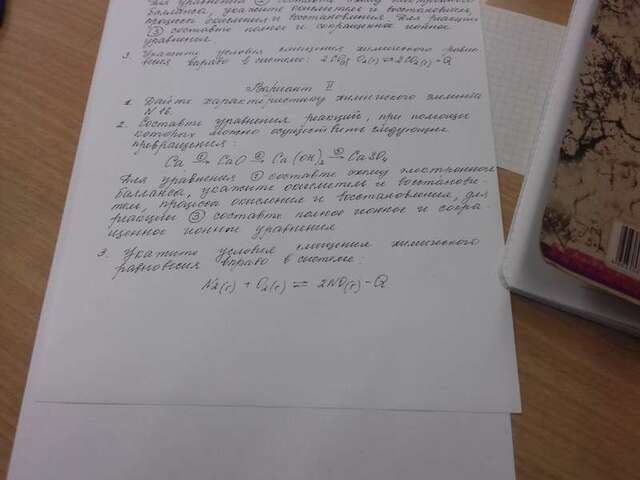 Для уравнения ① составте схему электронного
баланса, укажите окислитель и восстановитель,
процесса окисления и востановления. Для реакции
③ составте полное и сокращенное ионное
уравнение
3. Укажите условия смещения химического равно-
весия вправо в системе: 2CO₂(г) ⇌ -Q
Вариант II
1. Дайте характеристику химического элемента
N 16.
2. Составте уравнения реакций, при помощи
которых можно осуществить следующие
превращения:
Ca ①→ CaO ②→ Ca(OH)₂ ③→ CaSO₄
Для уравнения ① составте схему электронного
балланса, укажите окислитель и востанови-
тель, процесса окисления и восстановления, для
реакции ③ составте полное ионное и сокра-
щенное ионные уравнения
3. Укажите условия смещения химического
равновесия вправо в системе:
N₂(г) + O₂(г) ⇌ 2NO(г) - Q